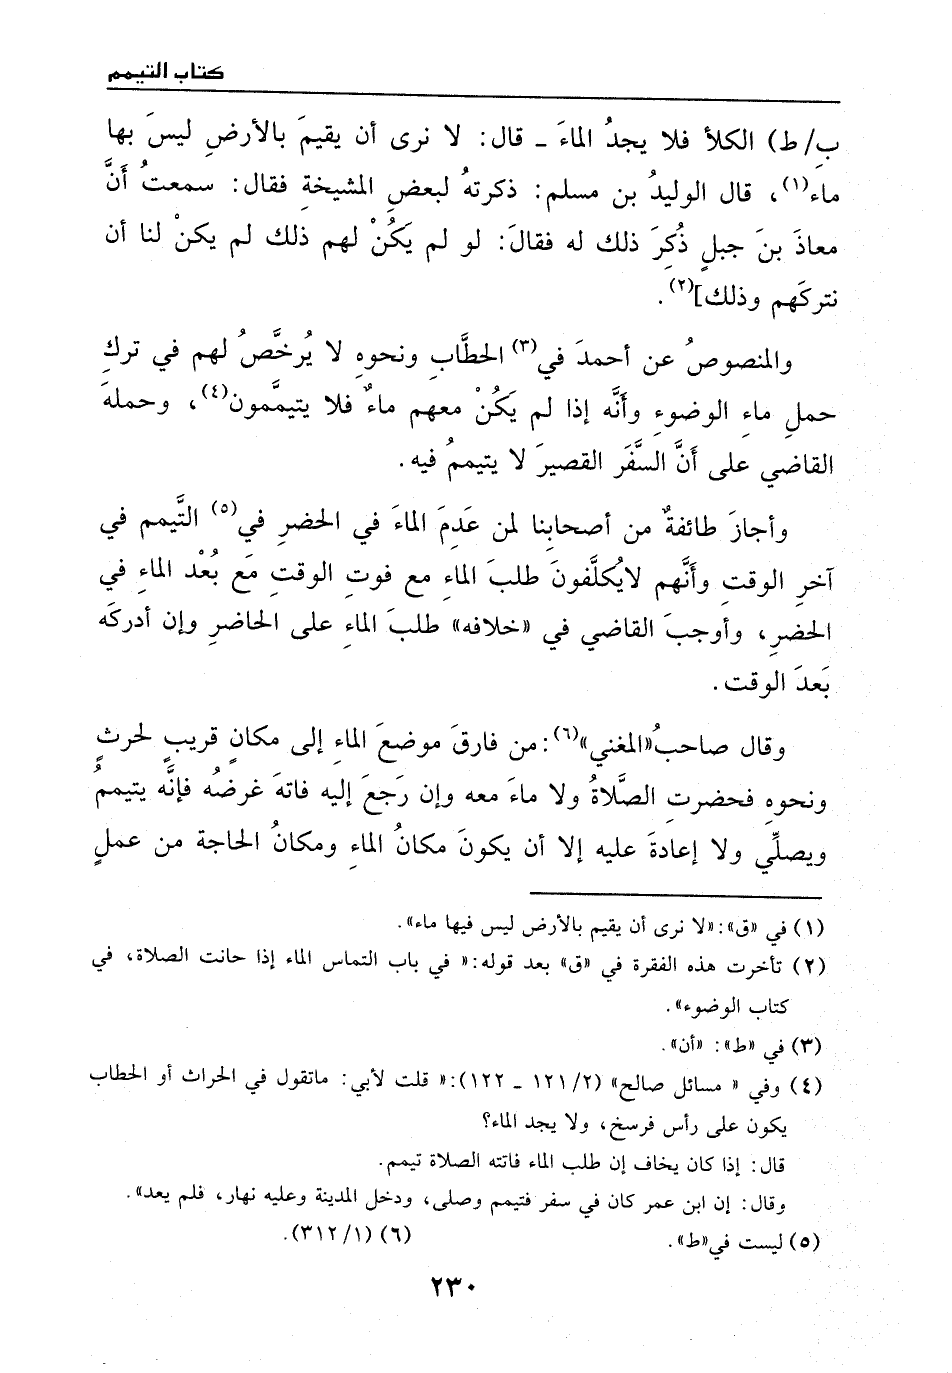 كتاب التيمم
ب/ ط) الكلأ فلا يجدُ الماءَ ـ قال: لا نرى أن يقيمَ بالأرضِ ليسَ بها
ماء(١)، قال الوليدُ بن مسلم: ذكرتهُ لبعضِ المشيخةِ فقال: سمعتُ أنَّ
معاذَ بنَ جبلٍ ذُكِرَ ذلك له فقالَ: لو لم يَكُنْ لهم ذلك لم يكنْ لنا أن
نتركَهم وذلك](٢).
والمنصوصُ عن أحمدَ في(٣) الحطَّابِ ونحوهِ لا يُرخَّصُ لهم في تركِ
حملِ ماءِ الوضوءِ وأنَّه إذا لم يَكُنْ معهم ماءٌ فلا يتيمَّمون(٤)، وحملهَ
القاضي على أنَّ السَّفَر القصيرَ لا يتيممُ فيه.
وأجازَ طائفةٌ من أصحابِنا لمن عَدِمَ الماءَ في الحضرِ في(٥) التَّيمم في
آخرِ الوقتِ وأنَّهم لايُكلَّفونَ طلبَ الماءِ مع فوتِ الوقتِ مَع بُعْد الماءِ في
الحضرِ، وأوجبَ القاضي في «خلافه» طلبَ الماءِ على الحاضرِ وإن أدركَه
بَعدَ الوقت.
وقال صاحبُ«المغني»(٦): من فارقَ موضعَ الماءِ إلى مكانٍ قريبٍ لحرثٍ
ونحوهِ فحضرتِ الصَّلاةُ ولا ماءَ معه وإن رَجَعَ إليه فاتهَ غرضُه فإنَّه يتيممُ
ويصلِّي ولا إعادةَ عليه إلا أن يكونَ مكانُ الماءِ ومكانُ الحاجة من عملٍ
(١) في «ق»: «لا نرى أن يقيم بالأرض ليس فيها ماء».
(٢) تأخرت هذه الفقرة في «ق» بعد قوله: « في باب التماس الماء إذا حانت الصلاة، في
كتاب الوضوء».
(٣) في «ط»: «أن».
(٤) وفي « مسائل صالح» (٢/ ١٢١ ـ ١٢٢): « قلت لأبي: ماتقول في الحراث أو الحطاب
يكون على رأس فرسخ، ولا يجد الماء؟
قال: إذا كان يخاف إن طلب الماء فاتته الصلاة تيمم.
وقال: إن ابن عمر كان في سفر فتيمم وصلى، ودخل المدينة وعليه نهار، فلم يعد».
(٥) ليست في«ط». (٦) (١/ ٣١٢).
٢٣٠